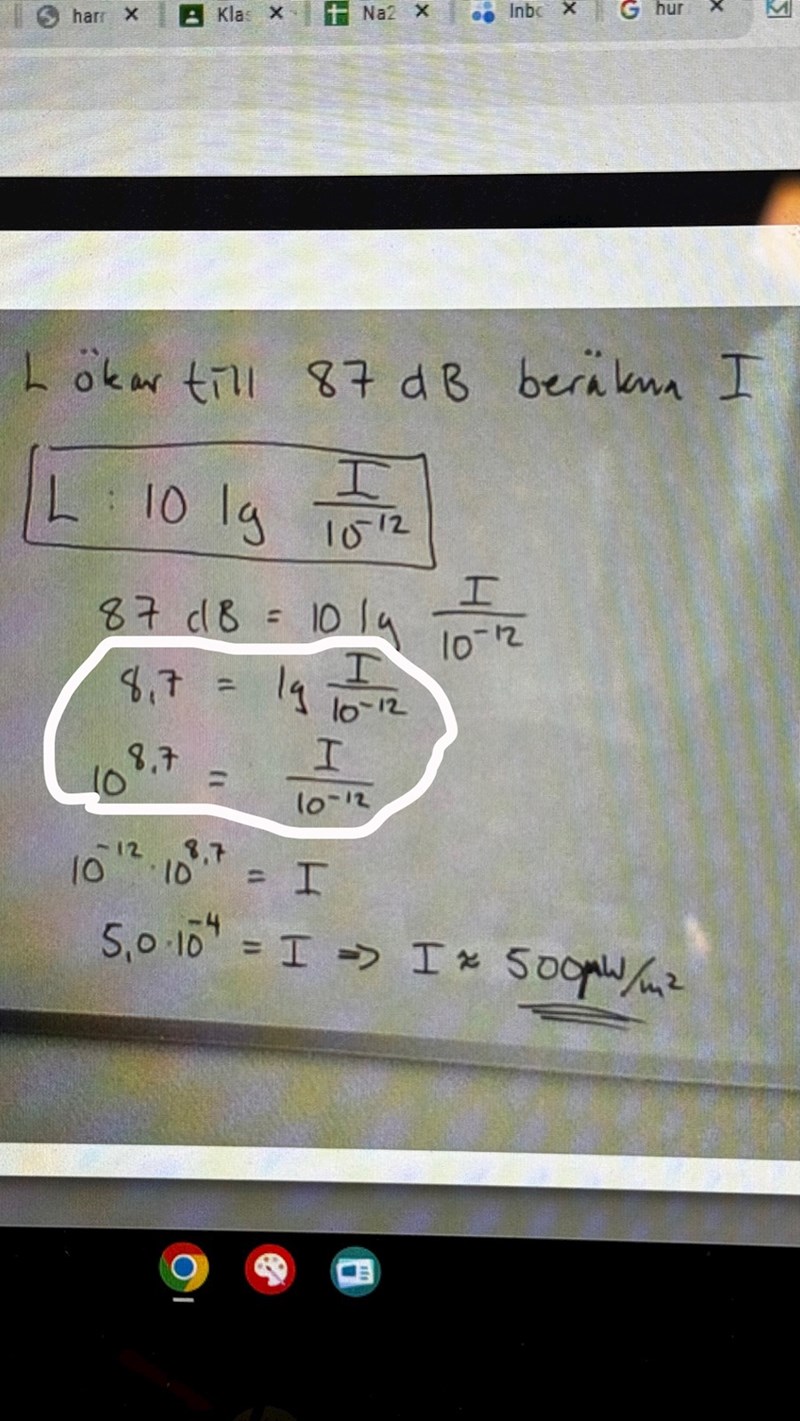 harr Kla Na2 Inbo hur
L ökar till 87 dB beräkna I
L : 10 lg I/10⁻¹²
87 dB = 10 lg I/10⁻¹²
8,7 = lg I/10⁻¹²
10⁸,⁷ = I/10⁻¹²
10⁻¹² · 10⁸,⁷ = I
5,0 · 10⁻⁴ = I => I ≈ 500µW/m²